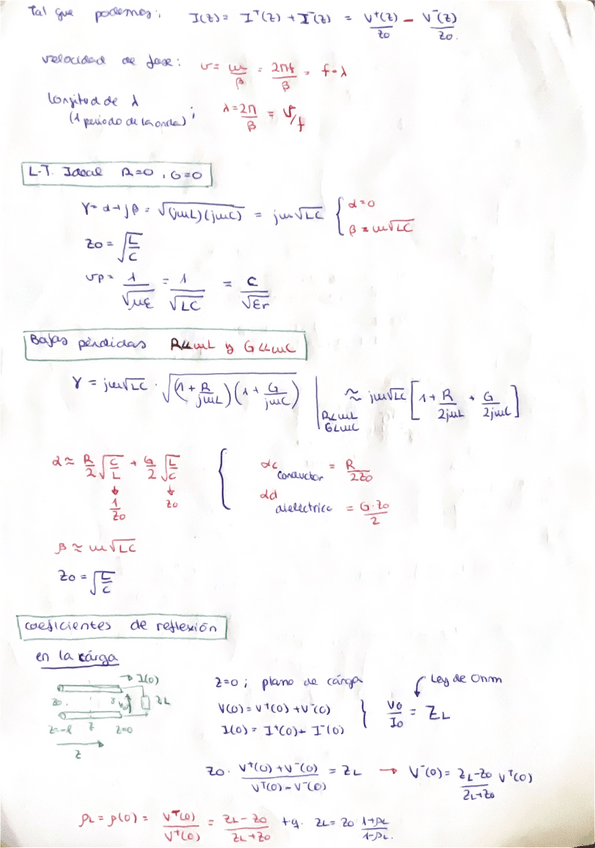 tal que podemos: I(z) = I⁺(z) + I⁻(z) = V⁺(z)/Z0 − V⁻(z)/Z0.
velocidad de fase: v = ω/β = 2πf/β = f·λ
longitud de λ
(1 periodo de la onda): λ = 2π/β = v/f
L.T. Ideal R=0, G=0
γ = α+jβ = √(jωL)(jωC) = jω√LC { α=0
β=ω√LC
Z0 = √L/C
vp = 1/√με = 1/√LC = c/√εr
Bajas pérdidas R≪ωL y G≪ωC
γ = jω√LC · √(1+R/jωL)(1+G/jωC) | R≪ωL G≪ωC ≈ jω√LC [1 + R/2jωL + G/2jωC]
α ≈ R/2 √C/L + G/2 √L/C { αc conductor = R/2Z0
↓ 1/Z0 ↓ Z0 αd dieléctrico = G·Z0/2
β ≈ ω√LC
Z0 = √L/C
coeficientes de reflexión
en la cárga
→ I(0)
Z0 ZL
z=-l z z=0
z
z=0; plano de cárga
V(0) = V⁺(0) + V⁻(0)
I(0) = I⁺(0) + I⁻(0) } V0/I0 = ZL
Ley de Ohm
Z0 · V⁺(0)+V⁻(0)/V⁺(0)−V⁻(0) = ZL → V⁻(0) = ZL−Z0/ZL+Z0 V⁺(0)
ρL = ρ(0) = V⁻(0)/V⁺(0) = ZL−Z0/ZL+Z0 ZL = Z0 1+ρL/1−ρL.